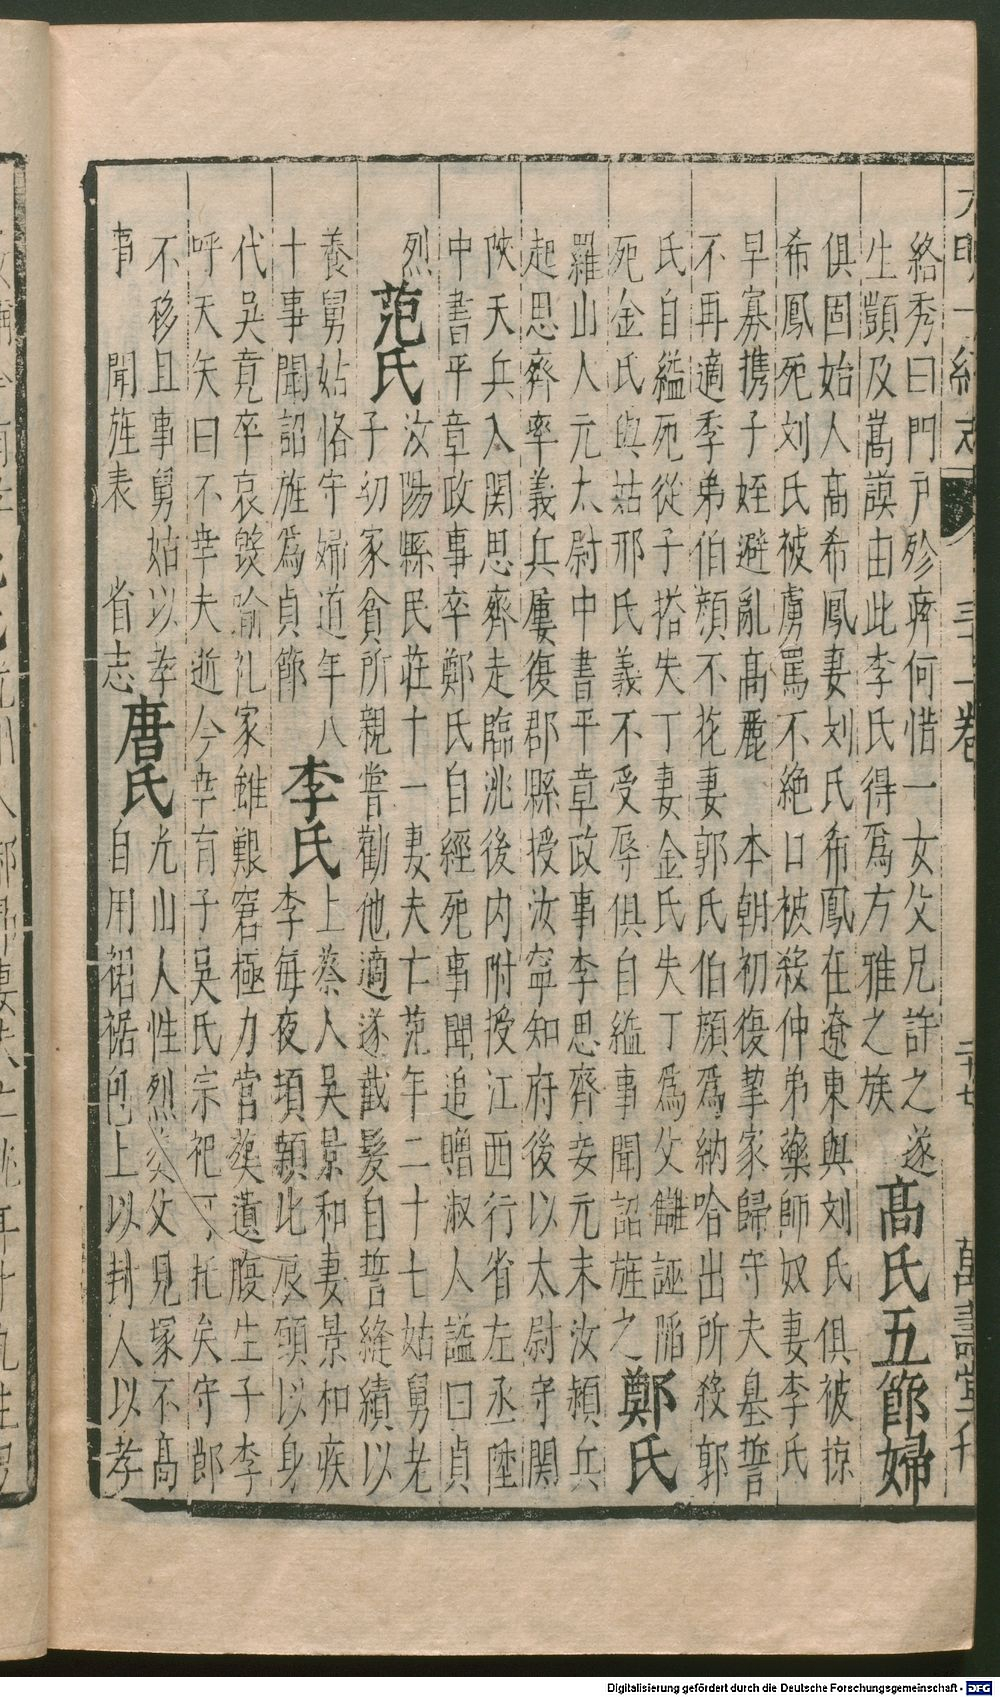 大明一統志 三十一卷 二十七 萬壽堂刊
絡秀曰門戸殄瘁何惜一女父兄許之遂
生顗及嵩謨由此李氏得爲方雅之族
高氏五節婦
俱固始人高希鳳妻刘氏希鳳在遼東與刘氏俱被掠
希鳳死刘氏被虜罵不絶口被殺仲弟藥師奴妻李氏
早寡携子姪避亂高麗 本朝初復挈家歸守夫墓誓
不再適季弟伯顔不花妻郭氏伯顔爲納哈出所殺郭
氏自縊死從子搭失丁妻金氏失丁爲父讎誣陷
死金氏與姑邢氏義不受辱俱自縊事聞詔旌之
鄭氏
羅山人元太尉中書平章政事李思齊妾元末汝潁兵
起思齊率義兵屢復郡縣授汝寧知府後以太尉守関
陜天兵入関思齊走臨洮後内附授江西行省左丞陞
中書平章政事卒鄭氏自經死事聞追贈淑人謚曰貞
烈
范氏
汝陽縣民莊十一妻夫亡范年二十七姑舅老
子幼家貧所親嘗勸他適遂截髮自誓絳績以
養舅姑恪守婦道年八
十事聞詔旌爲貞節
李氏
上蔡人吳景和妻景和疾
李每夜項顙北辰頭以身
代吳竟卒哀毀喻礼家雖艱窘極力營葬遺腹生子李
呼天矢曰不幸夫逝今幸有子吳氏宗祀可托矣守節
不移且事舅姑以孝
事 聞旌表 省志
唐氏
光山人性烈葬父見塚不高
自用裙裾包上以封人以孝
Digitalisierung gefördert durch die Deutsche Forschungsgemeinschaft - DFG